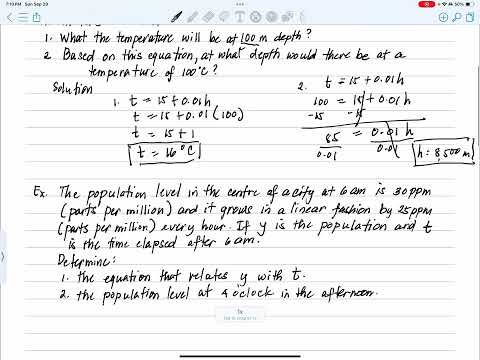 7:10 PM Sun Sep 20
50%
1. What the temperature will be at 100 m depth?
2. Based on this equation, at what depth would there be at a
temperature of 100°C?
Solution
1. t = 15 + 0.01h
t = 15 + 0.01 (100)
t = 15 + 1
t = 16°C
2. t = 15 + 0.01h
100 = 15 + 0.01h
-15 -15
85 = 0.01 h
0.01 0.01
h = 8,500 m
Ex. The population level in the centre of a city at 6 am is 30 ppm
(parts per million) and it grows in a linear fashion by 25 ppm
(parts per million) every hour. If y is the population and t
is the time elapsed after 6 am.
Determine:
1. the equation that relates y with t.
2. the population level at 4 o'clock in the afternoon.